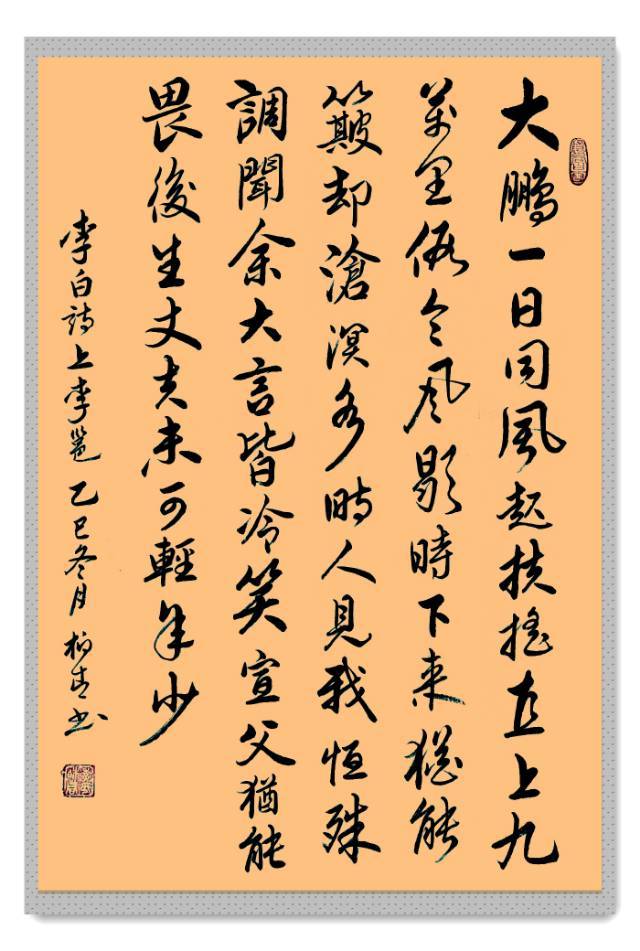 大鵬一日同風起扶搖直上九
萬里假令风歇時下来猶能
簸却滄溟水時人見我恒殊
調聞余大言皆冷笑宣父猶能
畏後生丈夫未可輕年少
李白詩上李邕 乙巳冬月 柏青书